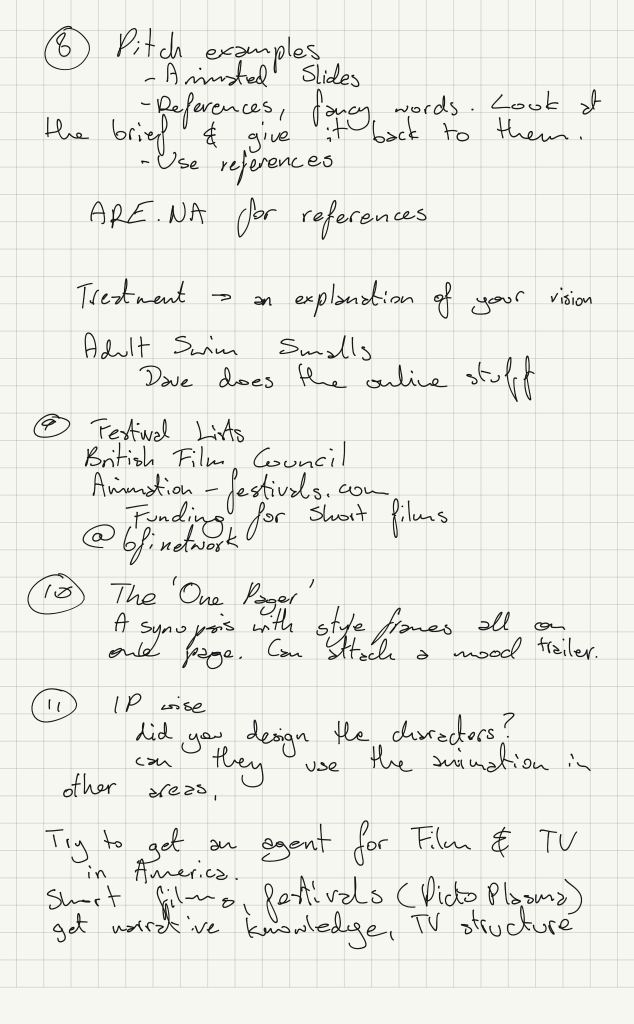 8 Pitch examples
- Animated Slides
- References, fancy words. Look at
the brief & give it back to them.
- Use references
ARE.NA for references
Treatment → an explanation of your vision
Adult Swim Smalls
Dave does the online stuff
9 Festival Lists
British Film Council
Animation-festivals.com
Funding for short films
@bfinetwork
10 The 'One Pager'
A synopsis with style frames all on
one page. Can attach a mood trailer.
11 IP wise
did you design the characters?
can they use the animation in
other areas,
Try to get an agent for Film & TV
in America.
Short films, festivals (Picto Plasma)
get narrative knowledge, TV structure